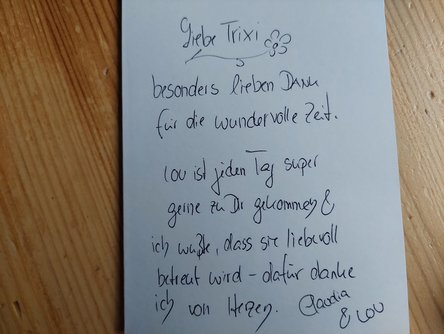 Liebe Trixi
besonders lieben DANK
für die wundervolle Zeit.
LOU ist jeden Tag super
gerne zu Dir gekommen &
ich wußte, dass sie liebevoll
betreut wird - dafür danke
ich von Herzen. Claudia
& LOU